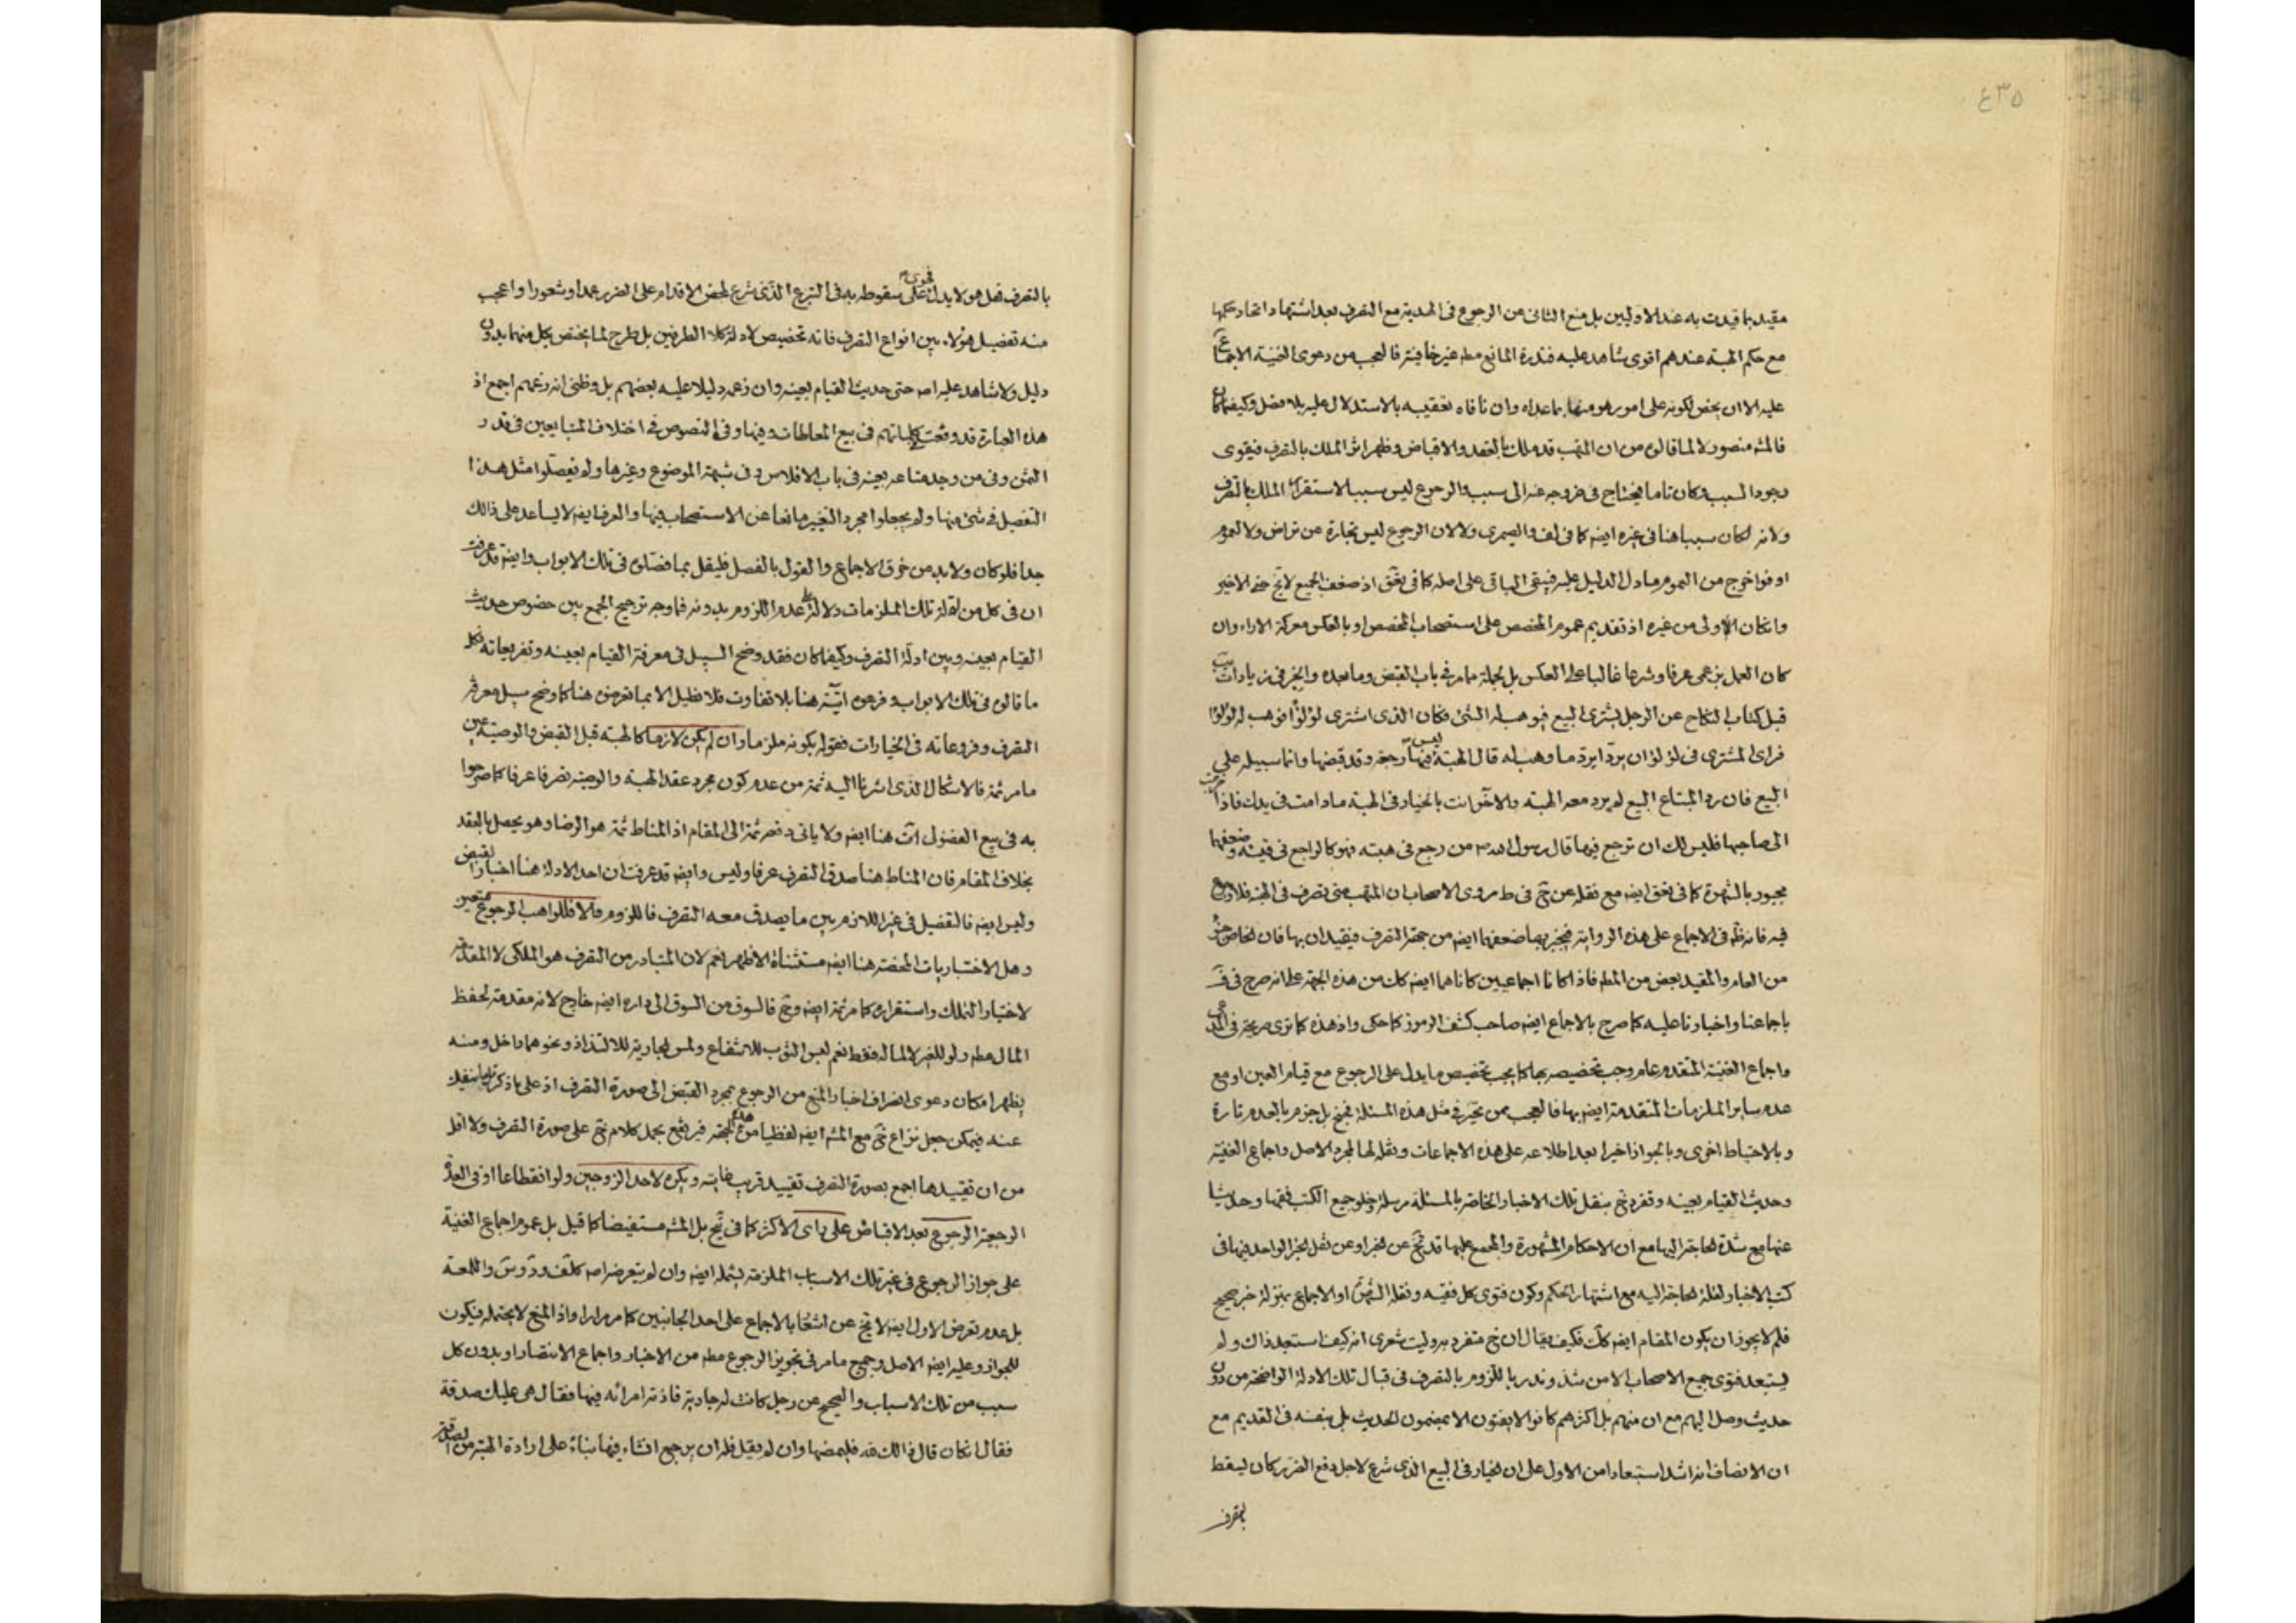 ٤٣٥
مقيد بما قيدت به عند الاولين بل منع الثانى من الرجوع فى الهدية مع التصرف بعد اشتهار اتحاد حكمها
مع حكم الهبة عندهم اقوى شاهد عليه فندرة المانع مطه غير خافية فالعجب من دعوى الغنية الاجماع
عليه الا ان يخص لكونه على امور هو منها بما عداه وان نافاه تعقيبه بالاستدلال عليه بلا فصل وكيفما كان
فالمشه منصور لا لما قالوه من ان المتهب قد ملك بالعقد والاقباض وظهر اثر الملك بالتصرف فيقوى
وجود السبب وكان تاما فيحتاج فى خروجه عنه الى سبب والرجوع ليس سببا لاستقرار الملك بالتصرف
ولانه لو كان سببا هنا فى غيره ايضه كما فى لف والصيمرى ولا لان الرجوع ليس تجارة عن تراض ولا لعموم
اوفوا خرج من العموم ما دل الدليل عليه فيبقى الباقى على اصله كما فى يفق اذ ضعف الجميع لا يخ حتى الاخير
وان كان الاولى من غيره اذ تقديم عموم المخصص على استصحاب المخصص او بالعكس معركة الاراء وان
كان العمل بزعمى عرفا وشرعا غالبا على العكس بل لجملة مما مر فى باب القبض وما بعده والخبر فى زيادات يب
قبل كتاب النكاح عن الرجل يشترى البيع فيوهب له الشئ فكان الذى اشترى لؤلؤا فوهب له لؤلؤا
فراى المشترى فى لؤلؤ ان يرد ايرد ما وهب له قال الهبة ليس فيها رجعة وقد قبضها وانما سبيله على
البيع فان رد المبتاع البيع لم يرد معه الهبة والاخر انت بالخيار فى الهبة ما دامت فى يدك فاذا خرجت
الى صاحبها فليس لك ان ترجع فيها قال رسول الله ص من رجع فى هبته فهو كالراجع فى قيئه وضعفهما
مجبور بالشهرة كما فى يفق ايضه مع نقله عن خ فى ط روى الاصحاب ان المتهب متى تصرف فى الهبة فلا رجوع
فيه فانه ظه فى الاجماع على هذه الرواية فيجبر بها ضعفهما ايضه من جهة التصرف فيقيدان بها فان الخاص جزء
من العام والمقيد بعض من المطه فاذا كانا اجماعيين كانا هما ايضه كك من هذه الجهة على انه صرح فى ف
باجماعنا واخبارنا عليه كما صرح بالاجماع ايضه صاحب كشف الرموز كما حكى واذ هذه كما ترى صريحة فى المدعى
واجماع الغنية المتقدم عام وجب تخصيصه بها كما يجب تخصيص ما يدل على الرجوع مع قيام العين او مع
عدم ساير الملزمات المتقدمة ايضه بها فالعجب ممن تحير فى مثل هذه المسئلة فجنح بل جزم بالعدم تارة
وبالاحتياط اخرى وبالجواز اخيرا بعد اطلاعه على هذه الاجماعات ونقله لها لمجرد الاصل واجماع الغنية
وحديث القيام بعينه وتفرد خ بنقل تلك الاخبار الخاصة بالمسئلة مرسلة وخلو جميع الكتب فقها وحديثا
عنها مع شدة الحاجة اليها مع ان الاحكام المشهورة والمجمع عليها قد تخ عن الخبر او عن نقل الخبر الواحد فيها فى
كتب الاخبار لقلة الحاجة اليه مع اشتهار الحكم وكون فتوى كل فقيه ونقله الشهرة او الاجماع بمنزلة خبر صحيح
فلم لا يجوز ان يكون المقام ايضه كك فكيف يقال ان خ متفرد به وليت شعرى انه كيف استبعد ذاك ولم
يستبعد فتوى جميع الاصحاب الا من شذ وندر باللزوم بالتصرف فى قبال تلك الادلة الواضحة من دون
حديث وصل اليهم مع ان منهم بل اكثرهم كانوا لا يفتون الا بمضمون الحديث بل بنفسه فى القديم مع
ان الانصاف انه اشد استبعادا من الاول على ان الخيار فى البيع الذى شرع لاجل دفع الضرر كان ليسقط
بالتصرف
بالتصرف فهل هو لا يدل فحوى على سقوطه به فى التبرع الذى شرع لمحض الاقدام على الضرر عمدا وشعورا واعجب
منه تفصيل هؤلاء بين انواع التصرف فانه تخصيص لادلة كلا الطرفين بل طرح لما يختص بكل منهما بدون
دليل ولا شاهد عليه اصه حتى حديث القيام بعينه وان زعمه دليلا عليه بعضهم بل وظنى انه زعمهم اجمع اذ
هذه العبارة قد وقعت فى كلماتهم فى بيع المعاطات وفيها وفى النصوص فى اختلاف المتبايعين فى قدر
الثمن وفى من وجد متاعه بعينه فى باب الافلاس وفى شبهة الموضوع وغيرها ولم يفصلوا مثل هذا
التفصيل فى شئ منها ولم يجعلوا مجرد التغيير مانعا عن الاستصحاب فيها والعرف ايضه لا يساعد على ذالك
جدا فلو كان ولا بد من خرق الاجماع والقول بالفصل فليقل بما فصلوه فى تلك الابواب وايضه قد عرفت
ان فى كل من ادلة تلك الملزمات دلالة على عدم اللزوم بدونه فما وجه ترجيح الجمع بين خصوص حديث
القيام بعينه وبين ادلة التصرف وكيفما كان فقد وضح السبيل فى معرفة القيام بعينه وتفريعاته فكل
ما قالوه فى تلك الابواب وفرعوه اتية هنا بلا تفاوت فلا نطيل الا بما تعرضه هنا كما وضح سبيل معرفة
التصرف وفروعاته فى الخيارات فقوله بكونه ملزما وان لم يكن لازما كالهبة قبل القبض والوصية عين
ما مر ثمة فالاشكال الذى اشرنا اليه ثمة من عدم كون مجرد عقد الهبة والوصية تصرفا عرفا كما صرحوا
به فى بيع الفضولى ات هنا ايضه ولا ياتى دفعه ثمة الى المقام اذ المناط ثمة هو الرضا وهو يحصل بالعقد
بخلاف المقام فان المناط هنا صدق التصرف عرفا وليس وايضه قد عرفت ان احد الادلة هنا اخبار القبض
وليس ايضه فالتفصيل فى غير اللازم بين ما يصدق معه التصرف فاللزوم والا فللواهب الرجوع متعين
وهل الاختباريات المحضة هنا ايضه مستثناة الاظهر نعم لان المتبادر من التصرف هو الملكى لا المقدمة
لاختيار التملك واستقراره كما مر ثمة ايضه وح فالسوق من السوق الى داره ايضه خارج لانه مقدمة لحفظ
المال مطه ولو للغير لا لماله فقط نعم لبس الثوب للانتفاع ولمس الجارية للالتذاذ ونحوهما داخل ومنه
يظهر امكان دعوى انصراف اخبار المنع من الرجوع بمجرد القبض الى صورة التصرف اذ على ما ذكر قلما ينفك
عنه فيمكن جعل نزاع خ مع المشه ايضه لفظيا من هذه الجهة فيرتفع بحمل كلام خ على صورة التصرف ولا اقل
من ان تقييدها اجمع بصورة التصرف تقييد قريب غايته ويكره لاحد الزوجين ولو انقطاعا او فى العدة
الرجعية الرجوع بعد الاقباض على راى الاكثر كما فى نهج بل المشه مستفيضا كما قيل بل عموم اجماع الغنية
على جواز الرجوع فى غير تلك الاسباب الملزمة يشمله ايضه وان لم يتعرضه اصه كلف ود وس واللمعة
بل عدم تعرض الاول ايضه لا يخ عن اشعار بالاجماع على احد الجانبين كما مر مرارا واذ المنع لا يحتمله فيكون
للجواز وعليه ايضه الاصل وجميع ما مر فى تجويز الرجوع مطه من الاخبار واجماع الانتصار او بدون كل
سبب من تلك الاسباب والصحيح عن رجل كانت له جارية فاذته امراته فيها فقال هى عليك صدقة
فقال ان كان قال ذالك لله فليمضها وان لم يقل فله ان يرجع انشاء فيها بناء على ارادة الهبة من الصدقة